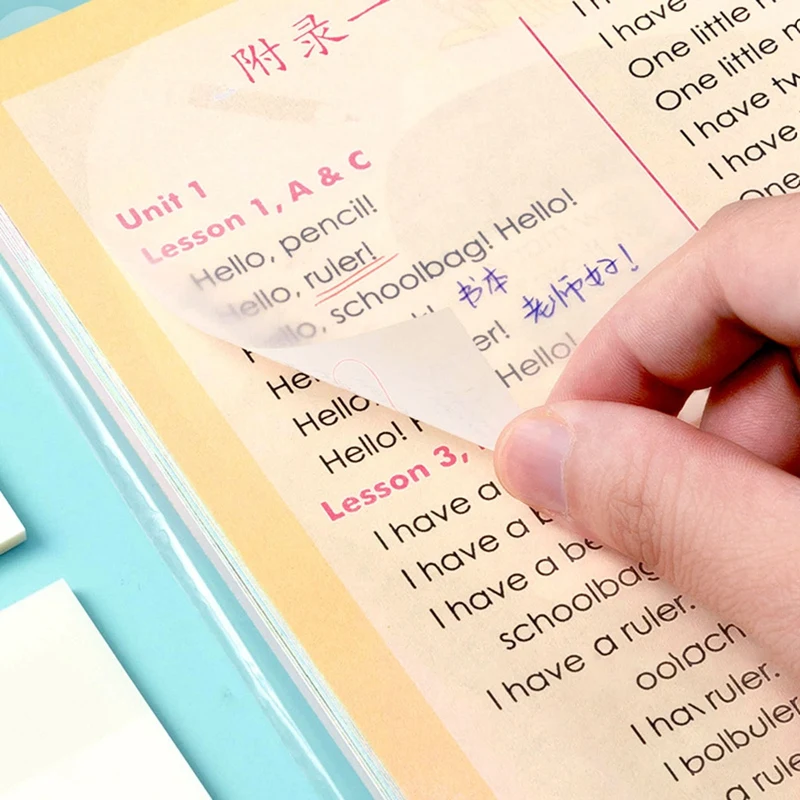 附录一
Unit 1
Lesson 1, A & C
Hello, pencil!
Hello, ruler!
Hello, schoolbag! Hello!
书本
er! 老师好!
He Hello!
Hello
Hello!
Lesson 3,
I have a
I have a b
I have a be
schoolbag
I have a ruler.
ooloch
I ha\ ruler.
I bolbuler
a rule
I have
One little
One little m
I have tw
I have
One